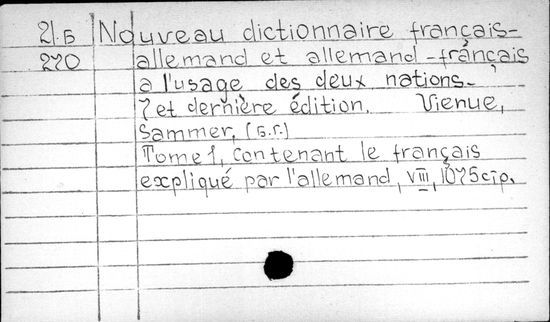 21.Б Nouveau dictionnaire français-
270 allemand et allemand-français
a l'usage des deux nations.
7 et dernière édition. Vienue,
Sammer, (б.г.)
Tome 1, contenant le français
expliqué par l'allemand, VIII, 1075 стр.